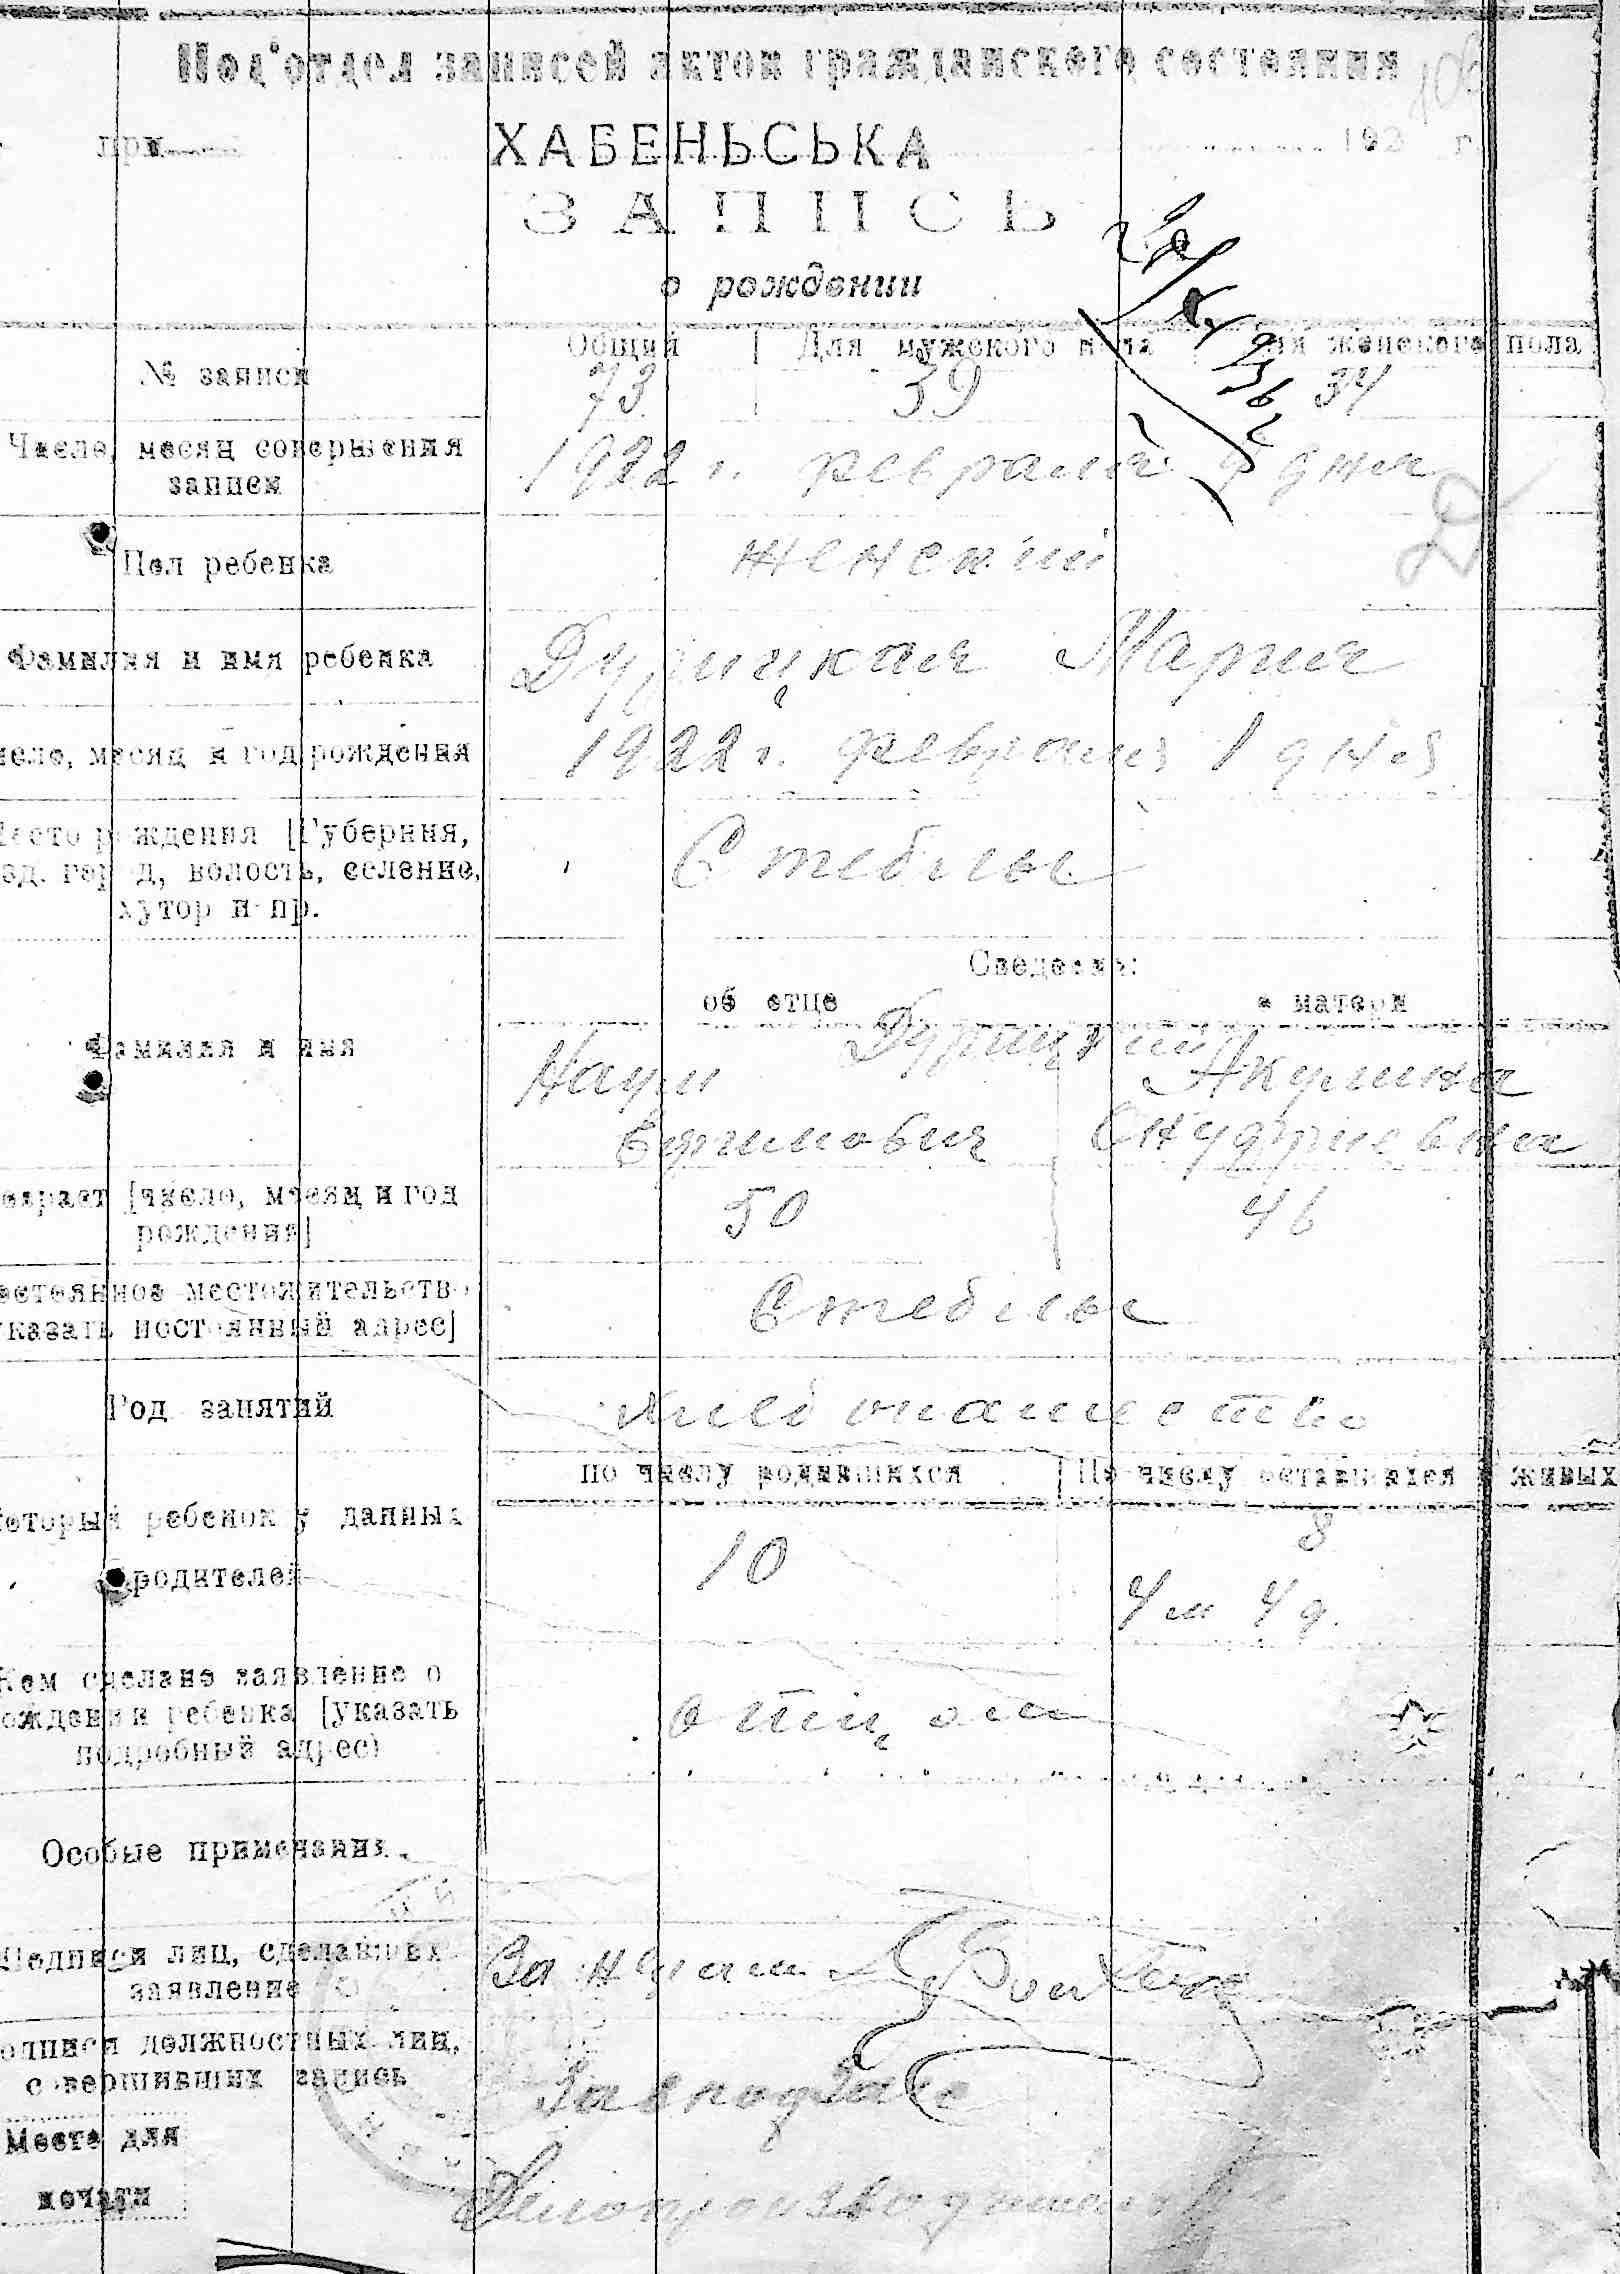 Под'отдел записей актов гражданского состояния
при
ХАБЕНЬСЬКА
192 г.
ЗАПИСЬ
о рождении
№ записи
Общий
Для мужского пола
Для женского пола
73
39
34
Число, месяц совершения
записи
1922 г. февраля 9 дня
Пол ребенка
женский
Фамилия и имя ребенка
Дурицкая Мария
число, месяц и год рождения
1922 г. февраля 1 дня
Место рождения [Губерния,
уезд. город, волость, селение,
хутор и пр.
Стебли
Сведения:
об отце
о матери
Фамилия и имя
Дурицкий
Наум
Акулина
Ефимович
Онуфриевна
Возраст [число, месяц и год
рождения]
50
46
Постоянное местожительство
указать постоянный адрес]
Род занятий
хлебопашество
по числу родившихся
По числу оставшихся в живых
Который ребенок у данных
родителей
10
8
4 м 4 д.
Кем сделано заявление о
рождении ребенка [указать
подробный адрес)
отцом
Особые примечания.
Подписи лиц, сделавших
заявление
За неграм
Подписи должностных лиц,
совершивших запись
Завподзагс
Место для
печати
Делопроизводитель